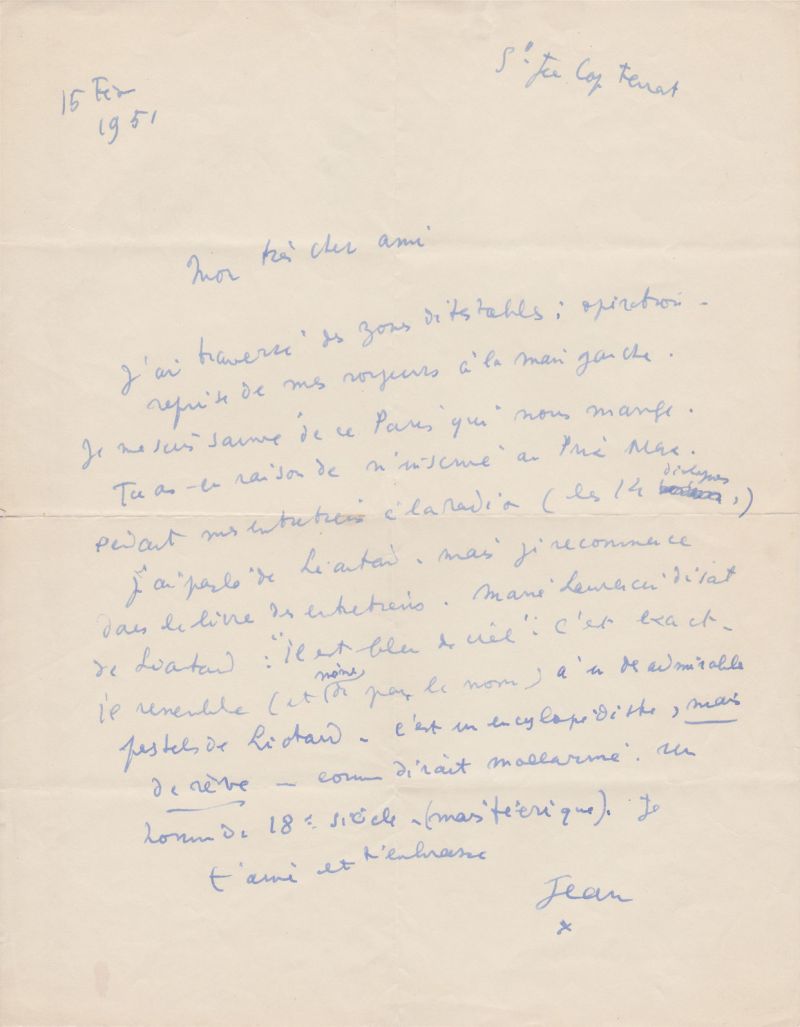 15 Fév
1951
St Jean Cap Ferrat
Mon très cher ami
J'ai traversé des zones détestables : opération -
reprise de mes voyages à la main gauche.
Je me suis sauvé de ce Paris qui nous mange.
Tu as eu raison de m'inscrire au Prix Max.
Pendant mes entretiens à la radio (les 14 disques,)
J'ai parlé de Liotard - mais je recommence
dans le livre des entretiens. Marie Laurencin disait
de Liotard : "il est bleu de ciel". C'est exact -
il ressemble (et même de par le nom) à un de admirables
pastels de Liotard - C'est un encyclopédiste, mais
de rêve - comme dirait Mallarmé. Un
homme de 18e siècle - (mais féerique). Je
t'aime et t'embrasse
Jean